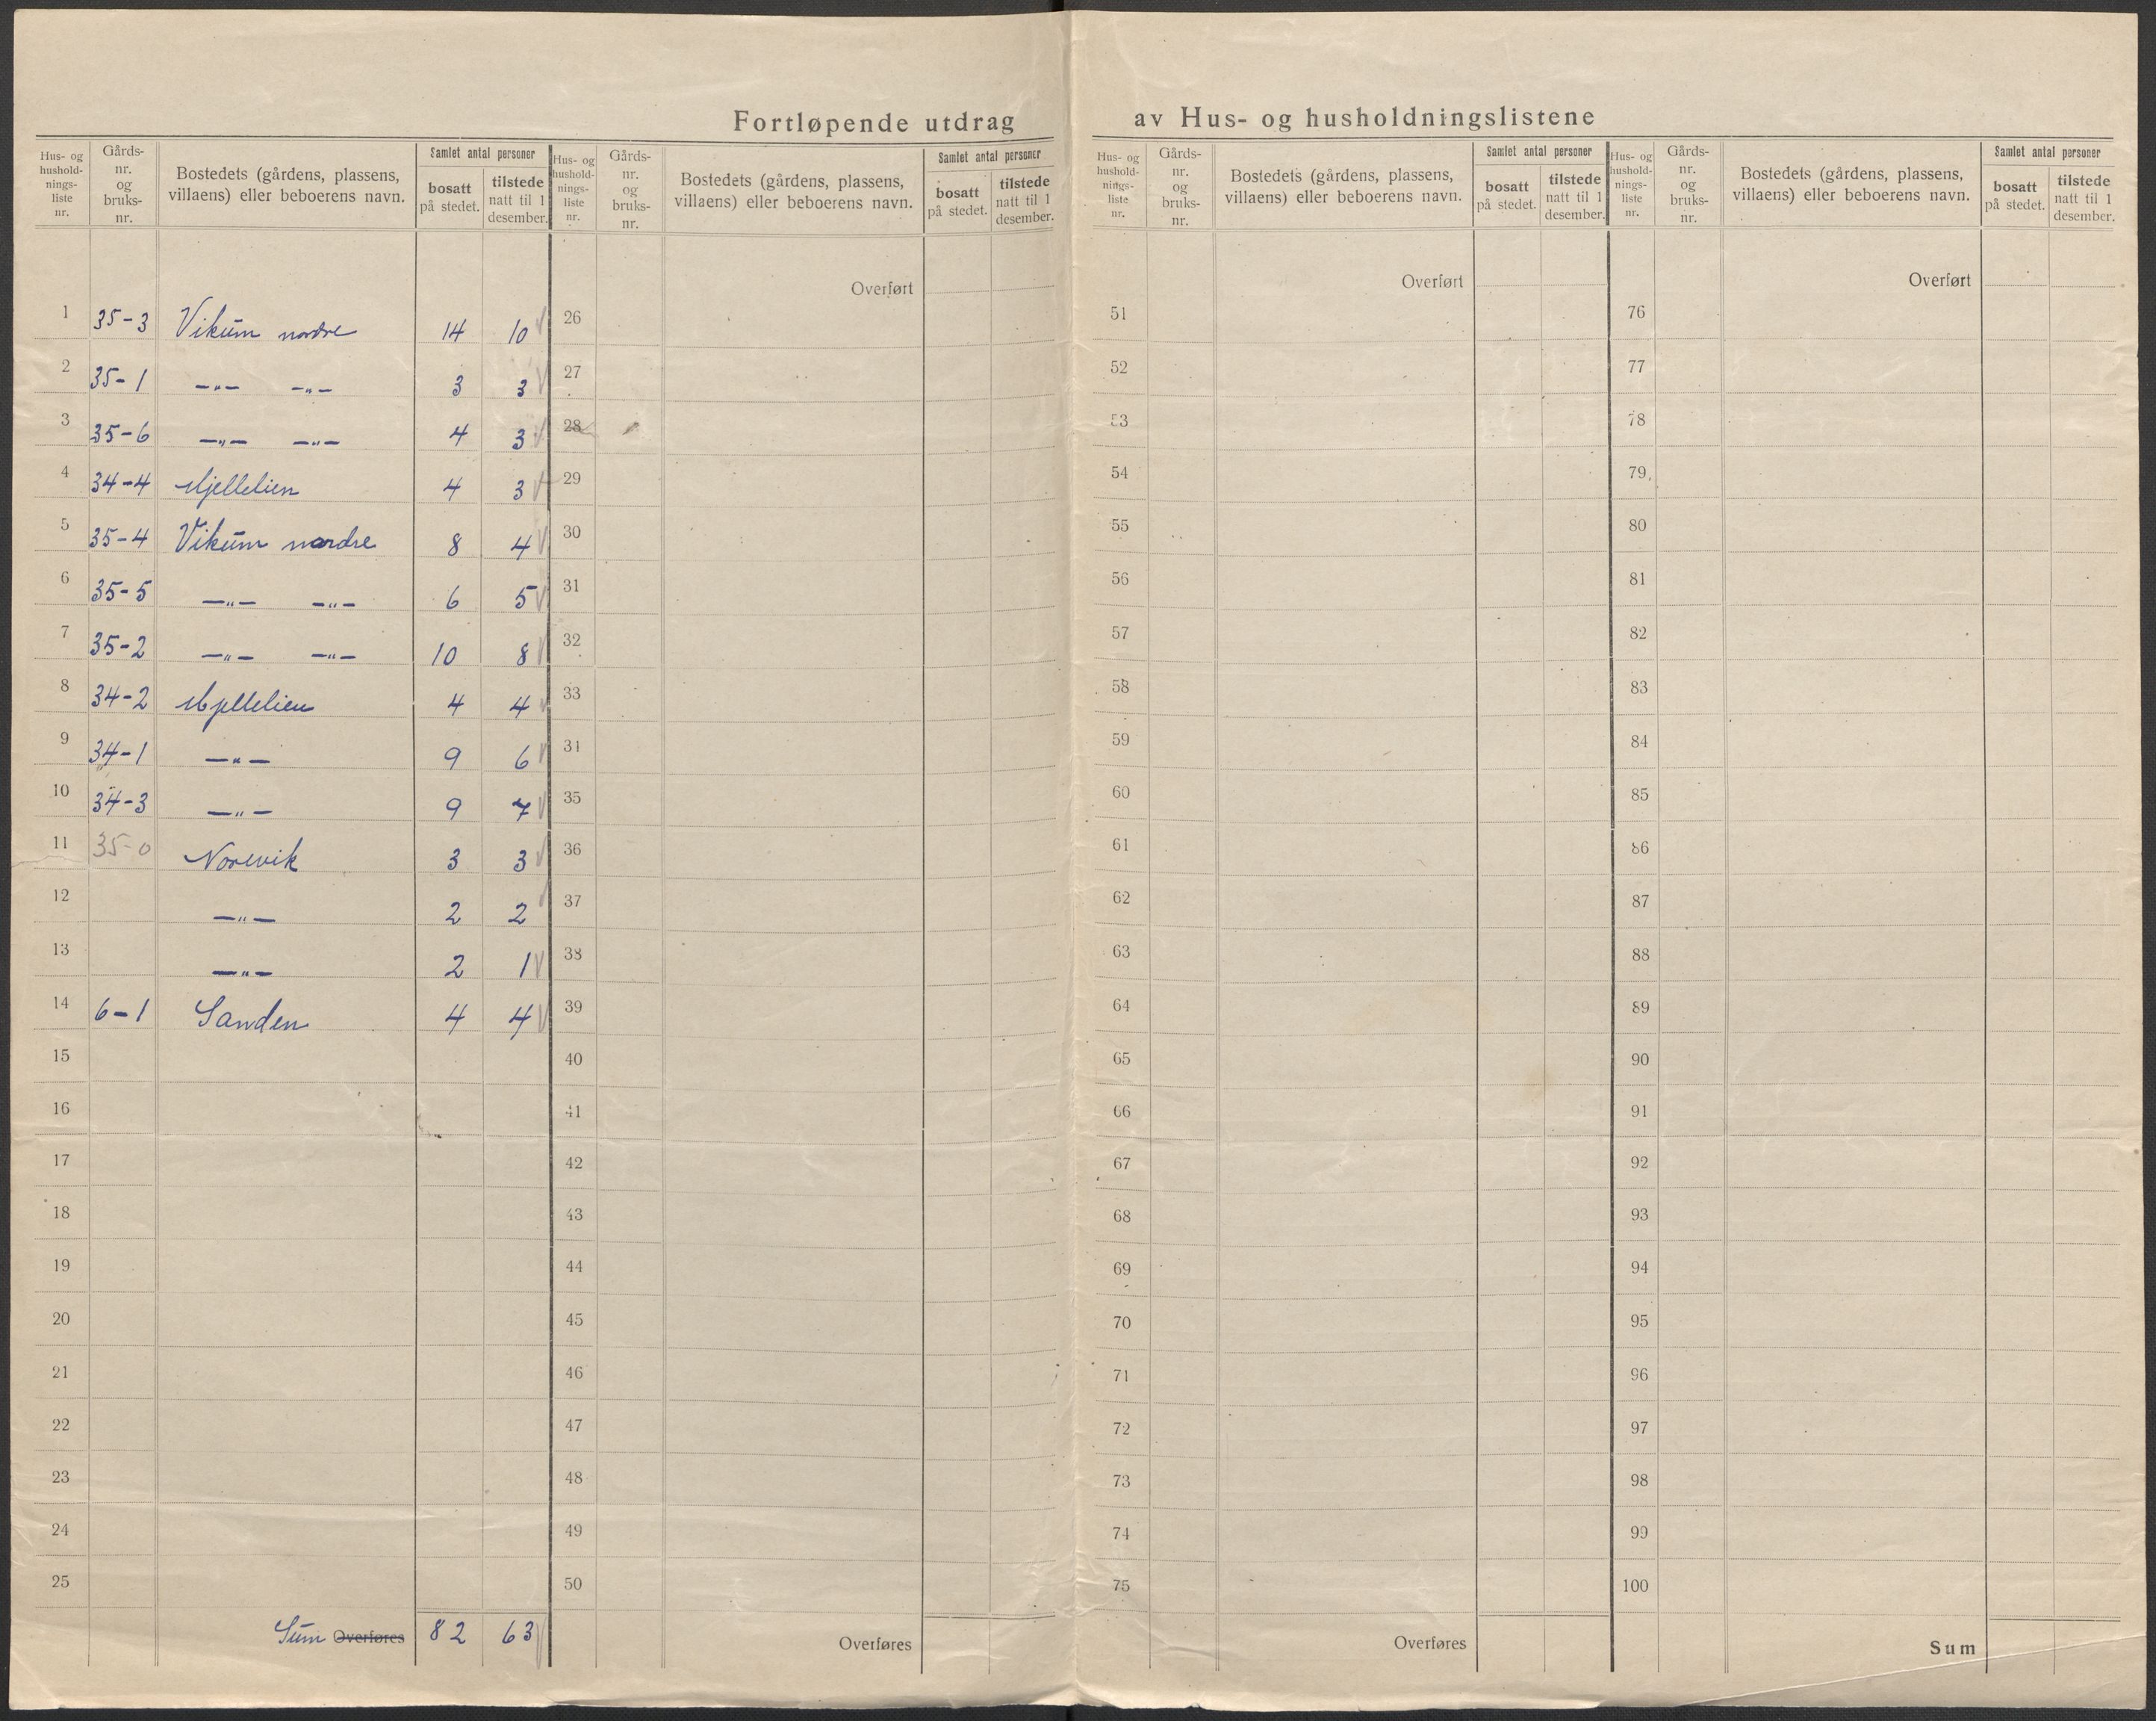 Fortløpende utdrag av Hus- og husholdningslistene
Hus- og husholdnings-liste nr. | Gårds-nr. og bruks-nr. | Bostedets (gårdens, plassens, villaens) eller beboerens navn. | Samlet antal personer | bosatt på stedet. | tilstede natt til 1 desember.
1 35-3 Vikum nordre 14 10
2 35-1 -„- -„- 3 3
3 35-6 -„- -„- 4 3
4 34-4 Mjellelien 4 3
5 35-4 Vikum nordre 8 4
6 35-5 -„- -„- 6 5
7 35-2 -„- -„- 10 8
8 34-2 Mjellelien 4 4
9 34-1 -„- 9 6
10 34-3 -„- 9 7
11 35-0 Norevik 3 3
12 -„- 2 2
13 -„- 2 1
14 6-1 Sanden 4 4
15
16
17
18
19
20
21
22
23
24
25
Sum Overføres 82 63
Hus- og husholdnings-liste nr. | Gårds-nr. og bruks-nr. | Bostedets (gårdens, plassens, villaens) eller beboerens navn. | Samlet antal personer | bosatt på stedet. | tilstede natt til 1 desember.
Overført
26
27
28
29
30
31
32
33
34
35
36
37
38
39
40
41
42
43
44
45
46
47
48
49
50
Overføres
Hus- og husholdnings-liste nr. | Gårds-nr. og bruks-nr. | Bostedets (gårdens, plassens, villaens) eller beboerens navn. | Samlet antal personer | bosatt på stedet. | tilstede natt til 1 desember.
Overført
51
52
53
54
55
56
57
58
59
60
61
62
63
64
65
66
67
68
69
70
71
72
73
74
75
Overføres
Hus- og husholdnings-liste nr. | Gårds-nr. og bruks-nr. | Bostedets (gårdens, plassens, villaens) eller beboerens navn. | Samlet antal personer | bosatt på stedet. | tilstede natt til 1 desember.
Overført
76
77
78
79
80
81
82
83
84
85
86
87
88
89
90
91
92
93
94
95
96
97
98
99
100
Sum